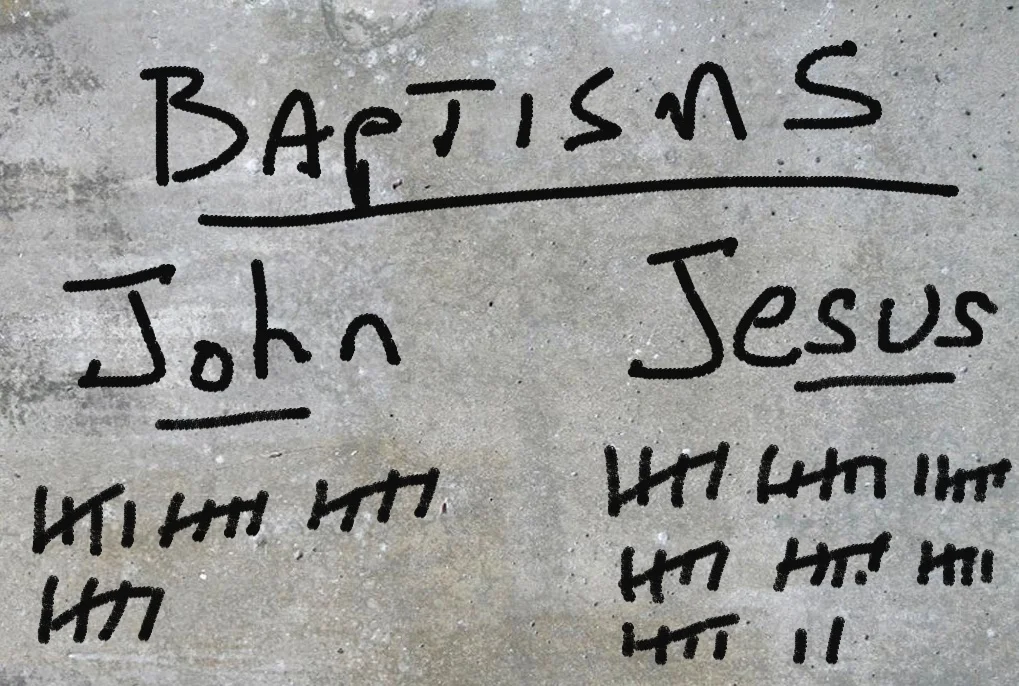 BAPTISMS
John Jesus